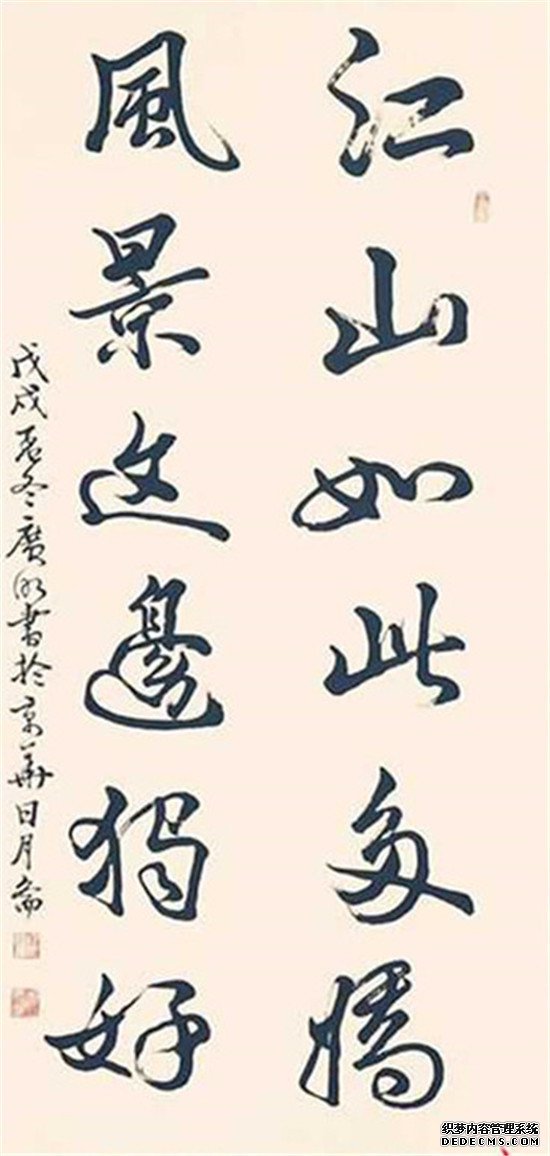 江山如此多嬌
風景这邊獨好
戊戌孟冬廣水書於京華日月斋
织梦内容管理系统
DEDECMS.COM